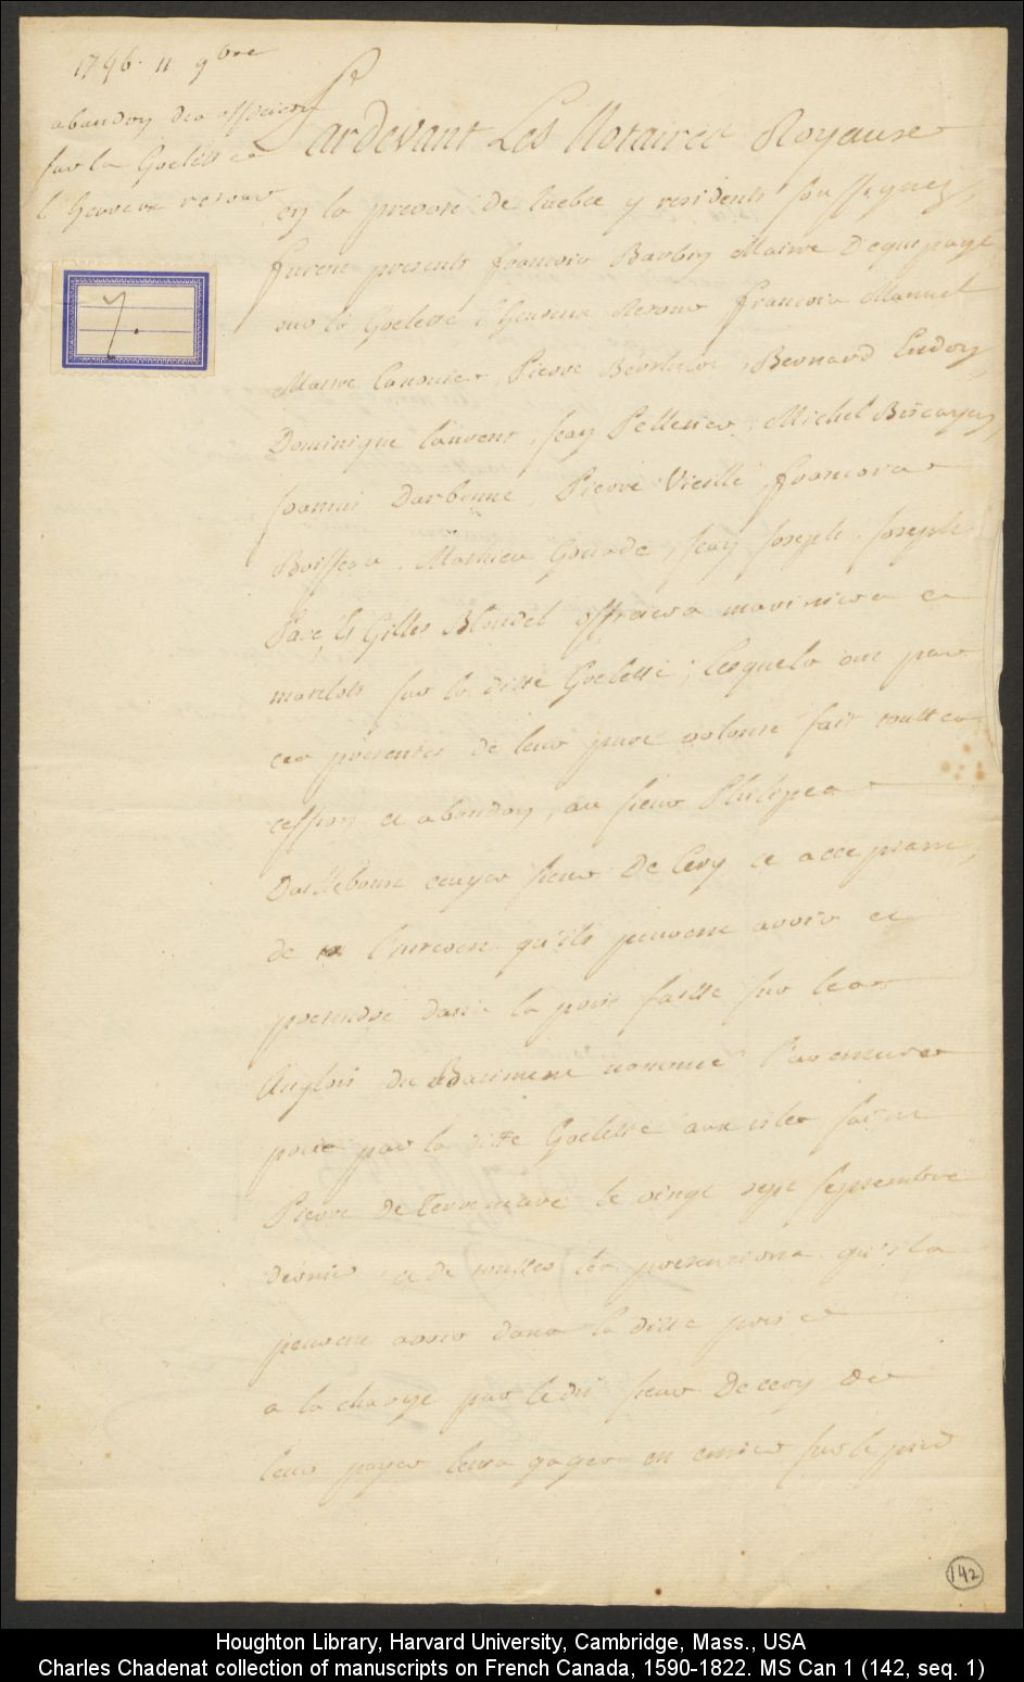 1746. 11 9bre
abandon des officiers
sur la Goelette
l'heureux retour
7.
Pardevant Les Notaires Royaux
en la prevosté de Quebec y residents soussignez
furent presents francois Barbin Maitre D'equipage
sur la Goelette l'heureux Retour francois Manuel
Maitre Canonier, Pierre Bernard
Dominique Laurens, Jean Pelletier, Michel
Darbonne, Pierre Vieille, francois
Boisseau, Matthieu, Jean Joseph, Joseph
Gilles Blondel officiers mariniers et
matelots sur la ditte Goelette; lesquels ont par
ces presentes de leur pure volonté fait toutte
cession et abandon, au sieur Philipes
Daillebout ecuyer sieur De Cery ce acceptant,
de l'interest qu'ils peuvent avoir et
pretendre dans la prise faitte sur les
Anglois du Batiment nommé
prise par la ditte Goelette aux isles saint
Pierre de terreneuve le vingt sept septembre
dernier et de touttes les pretentions qu'ils
peuvent avoir dans la ditte prise
a la charge par ledit sieur De cery de
leur payer leurs gages en entier sur le pied
142
Houghton Library, Harvard University, Cambridge, Mass., USA
Charles Chadenat collection of manuscripts on French Canada, 1590-1822. MS Can 1 (142, seq. 1)